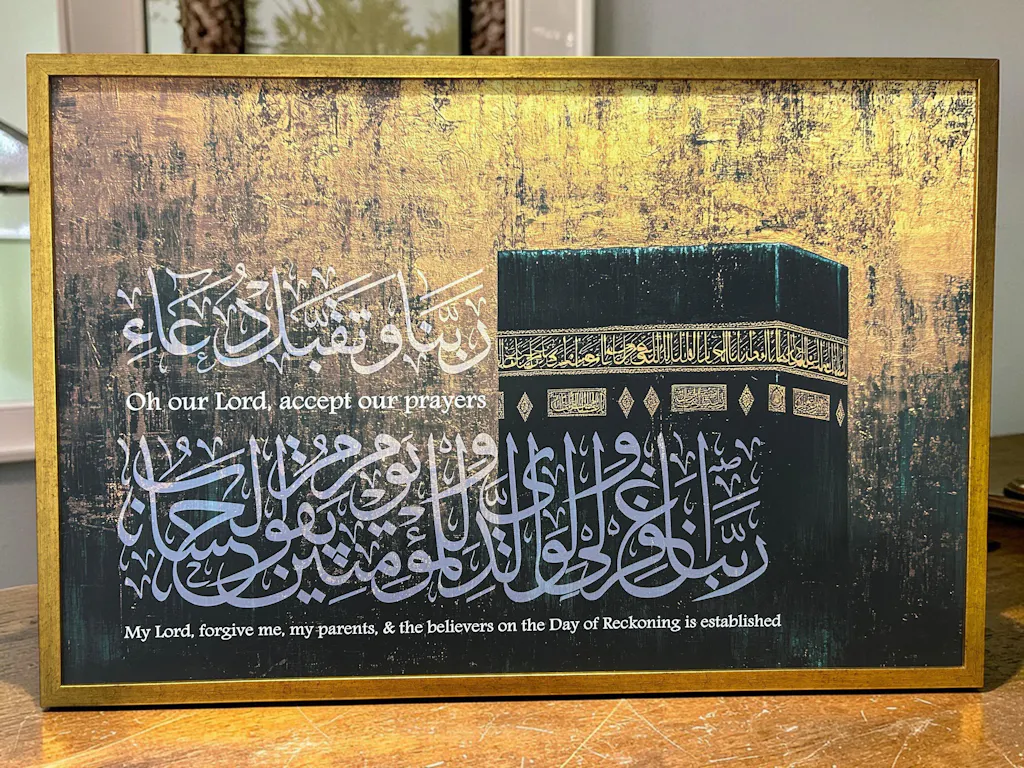 رَبَّنَا وَتَقَبَّلْ دُعَاءِ
Oh our Lord, accept our prayers
رَبَّنَا اغْفِرْ لِي وَلِوَالِدَيَّ وَلِلْمُؤْمِنِينَ يَوْمَ يَقُومُ الْحِسَابُ
My Lord, forgive me, my parents, & the believers on the Day of Reckoning is established